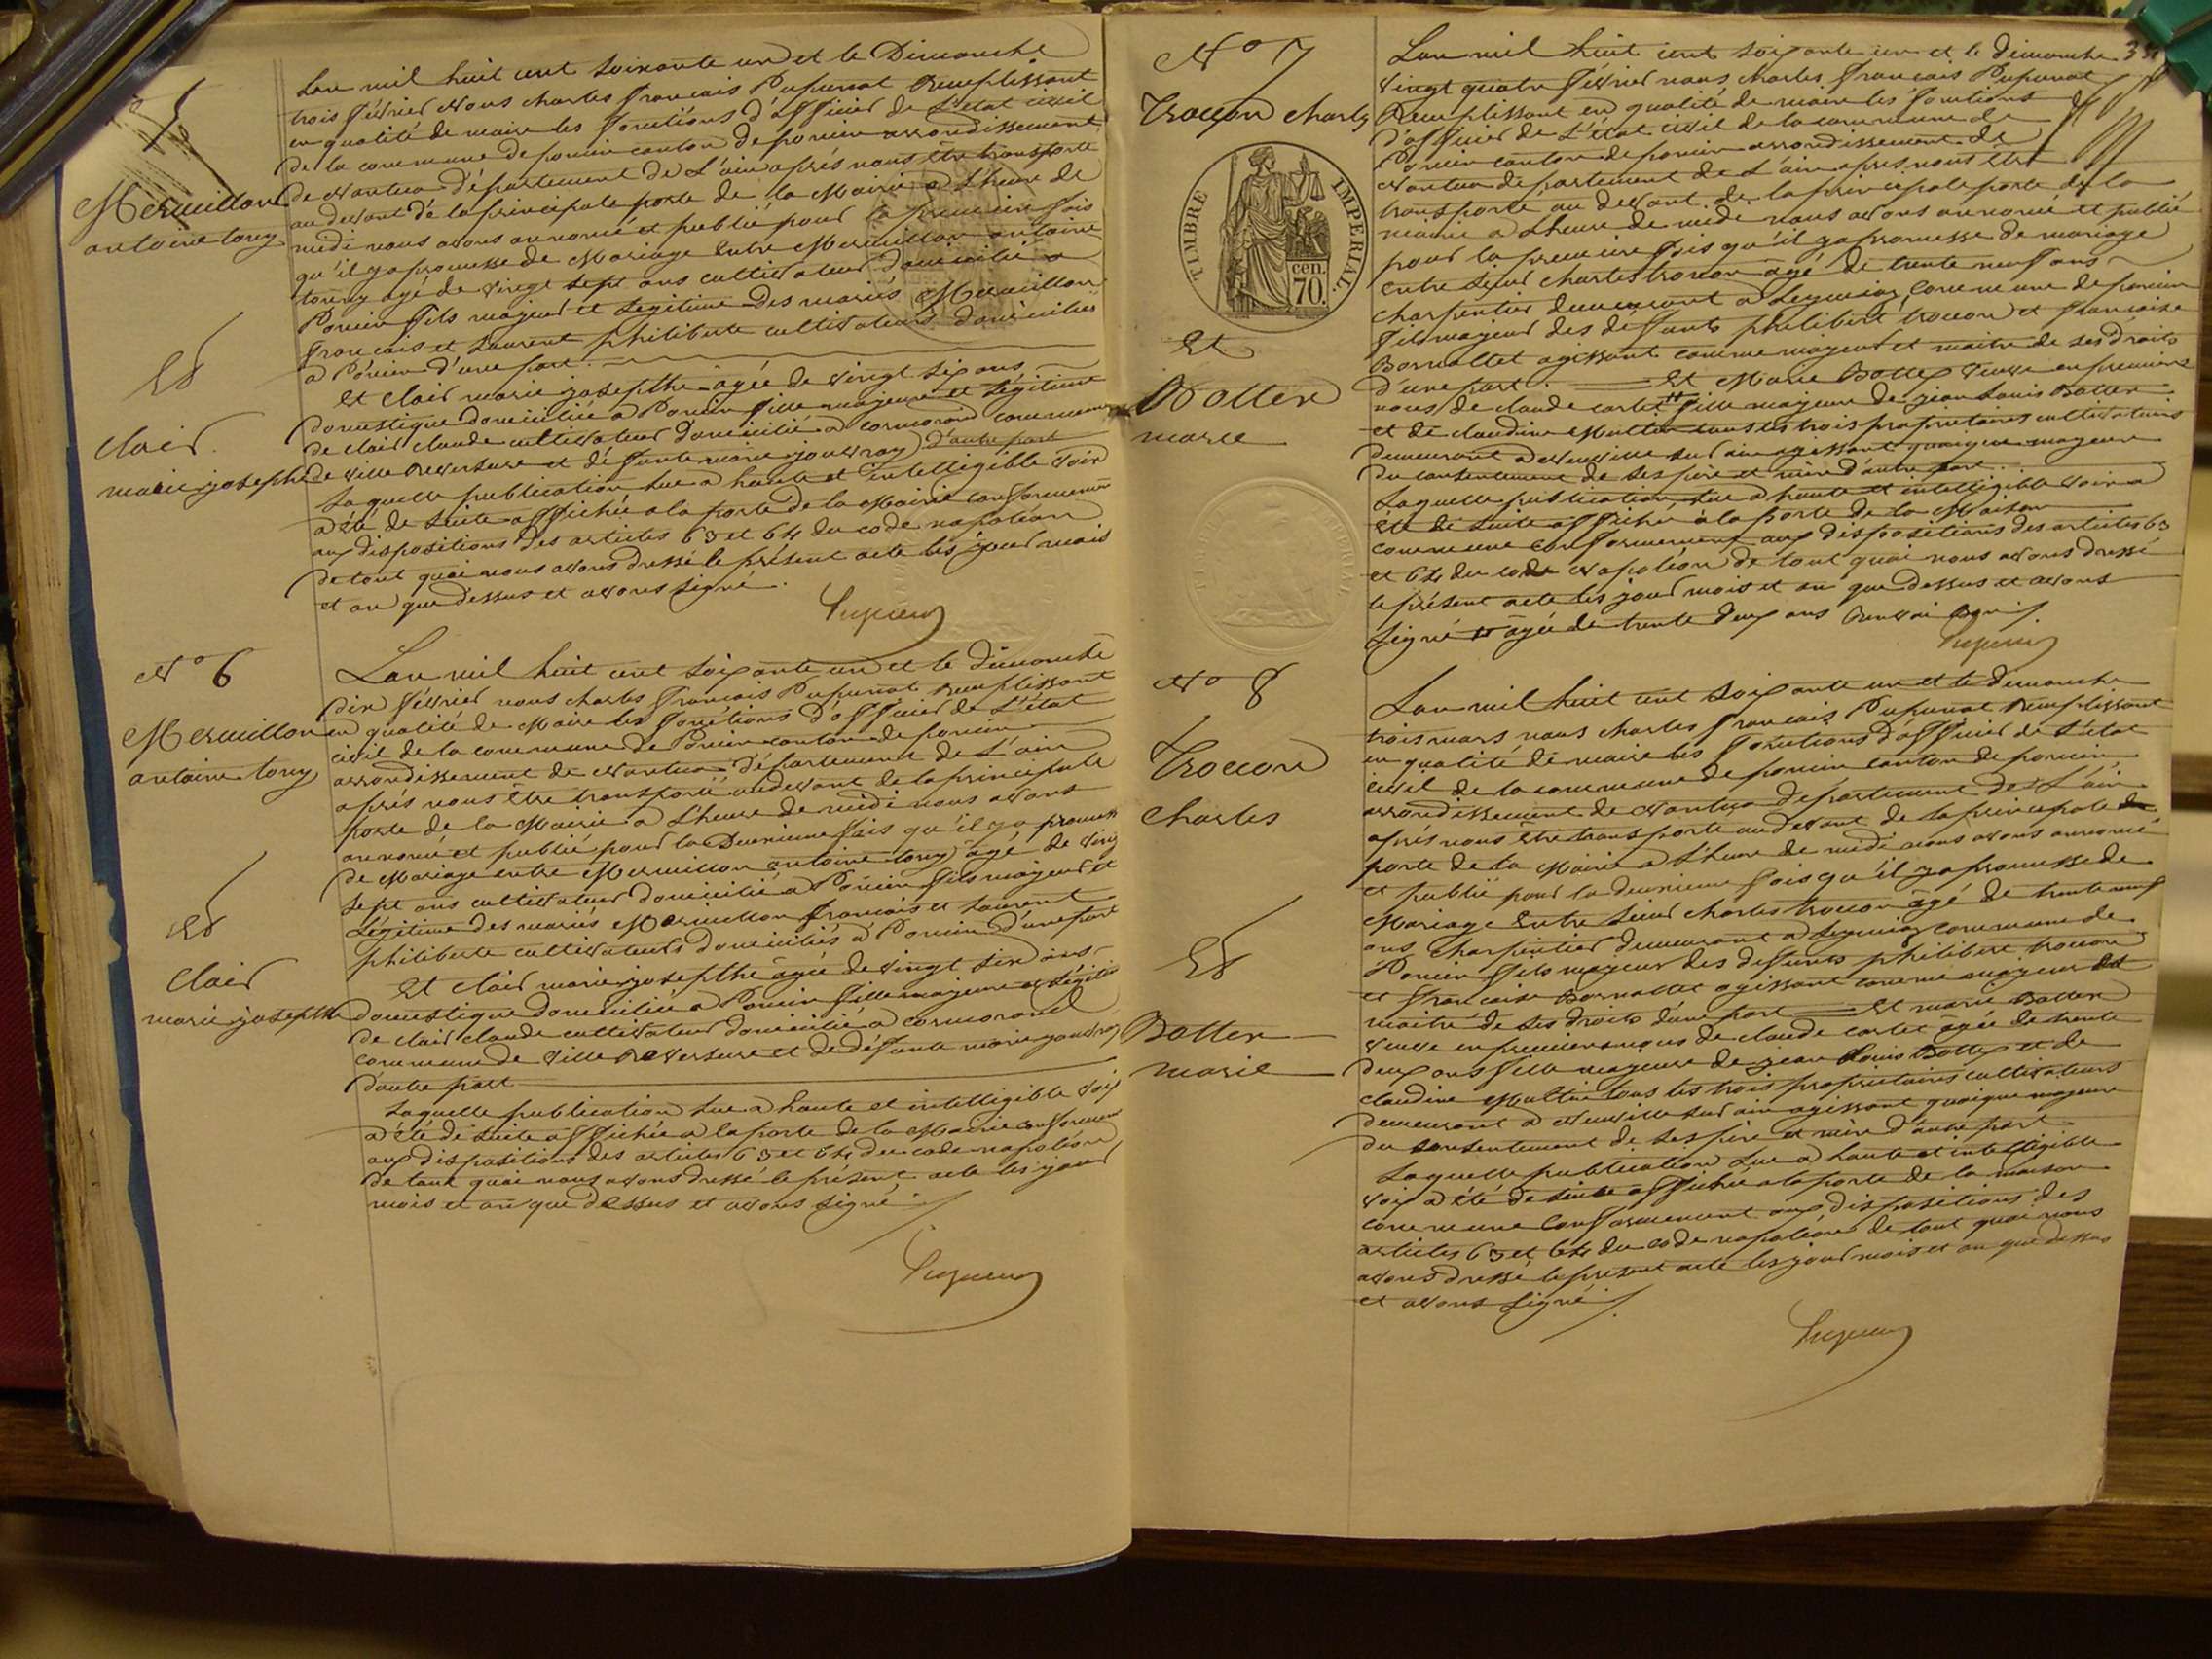 5
Mermillon
antoine tony
Et
Clair
marie josephe
Lan mil huit cent soixante un et le Dimanche
trois février Nous charles francois Pupunat Remplissant
en qualité de maire les fonctions d'officier de L'état civil
de la commune de poncin canton de poncin arrondissement
de Nantua département de L'ain après nous être transporté
au devant de la principale porte de la Mairie a L'heure de
midi nous avons annoncé et publié pour la premiere fois
qu'il y a promesse de Mariage Entre Mermillon antoine
tony agé de vingt sept ans cultivateur domicilié a
Poncin fils majeur et Legitime Des mariés Mermillon
francois et Laurent philiberte cultivateurs domiciliés
a Poncin d'une part.
Et Clair marie josepthe âgée de vingt six ans
domestique domiciliée a Poncin fille majeure et Légitime
de Clair claude cultivateur domicilié a cormorand commune
de Ville Reversure et défunte marie jouvray d'autre part
Laquelle publication Lue a haute et intelligible voix
a été de suite affichée a la porte de la Mairie conformement
aux dispositions des articles 63 et 64 du code napoléon
de tout quoi nous avons dressé le présent acte les jour mois
et an que dessus et avons signé.
N° 6
Mermillon
antoine tony
Et
Clair
marie josepthe
Lan mil huit cent soixante un et le dimanche
dix février nous charles francois Pupunat Remplissant
en qualité de Maire les fonctions d'officier de L'état
civil de la commune de Poncin canton de poncin
arrondissement de Nantua département de L'ain
après nous être transporté au devant de la principale
porte de la Mairie a L'heure de midi nous avons
annoncé et publié pour la Deuxieme fois qu'il y a promesse
de Mariage entre Mermillon antoine tony agé de vingt
sept ans cultivateur domicilié a Poncin fils majeur et
Légitime des mariés Mermillon francois et Laurent
philiberte cultivateurs domiciliés a Poncin d'une part
Et Clair marie josepthe âgée de vingt six ans
domestique domiciliée a Poncin fille majeure et Légitime
de Clair claude cultivateur domicilié a cormorand
commune de Ville Reversure et de défunte marie jouvray
d'autre part
Laquelle publication Lue a haute et intelligible voix
a été de suite affichée a la porte de la Mairie conformement
aux dispositions des articles 63 et 64 du code napoléon
de tout quoi nous avons dressé le présent acte les jour
mois et an que dessus et avons signé
N° 7
Trocçon charles
TIMBRE IMPERIAL
cen.
70.
Et
Botter
marie
Lan mil huit cent soixante un et le dimanche
vingt quatre février nous charles francois Pupunat
Remplissant en qualité de maire les fonctions
d'officier de L'état civil de la commune de
Poncin canton de poncin arrondissement de
Nantua département de L'ain apres nous être
transporté au devant de la principale porte de la
mairie a L'heure de midi nous avons annoncé et publié
pour la premiere fois qu'il y a promesse de mariage
entre sieur charles trocon âgé de trente neuf ans
charpentier demeurant a Leymiaz commune de poncin
fils majeur des défunts philibert trocon et francoise
Bornattet agissant comme majeur et maitre de ses droits
d'une part. Et Marie Botter veuve en premiere
noces de claude cortet # fille majeure de jean Louis Botter
et de claudine Multin tous les trois propriétaires cultivateurs
demeurant a Neuville sur ain agissant quoique majeure
du consentement de ses père et mère d'autre part.
Laquelle publication Lue a haute et intelligible voix a
été de suite affichée a la porte de la Maison
commune conformement aux dispositions des articles 63
et 64 du code Napoléon de tout quoi nous avons dressé
le présent acte les jour mois et an que dessus et avons
signé # âgée de trente deux ans
N° 8
Trocon
Charles
Et
Botter
marie
Lan mil huit cent soixante un et le dimanche
trois mars nous charles francois Pupunat Remplissant
en qualité de maire les fonctions d'officier de L'état
civil de la commune de poncin canton de poncin
arrondissement de Nantua département de L'ain
après nous être transporté au devant de la principale
porte de la Mairie a L'heure de midi nous avons annoncé
et publié pour la deuxieme fois qu'il y a promesse de
Mariage Entre sieur charles trocon âgé de trente neuf
ans charpentier demeurant a Leymiaz commune de
Poncin fils majeur des defunts philibert trocon
et francoise Bornattet agissant comme majeur et
maitre de ses droits d'une part Et marie Botter
veuve en premiere noces de claude cortet âgée de trente
deux ans fille majeure de jean Louis Botter et de
claudine Multin tous les trois propriétaires cultivateurs
demeurant a Neuville sur ain agissant quoique majeure
du consentement de ses père et mère d'autre part
Laquelle publication Lue a haute et intelligible
voix a été de suite affichée a la porte de la maison
commune conformement aux dispositions des
articles 63 et 64 du code napoléon de tout quoi nous
avons dressé le present acte les jour mois et an que dessus
et avons signé